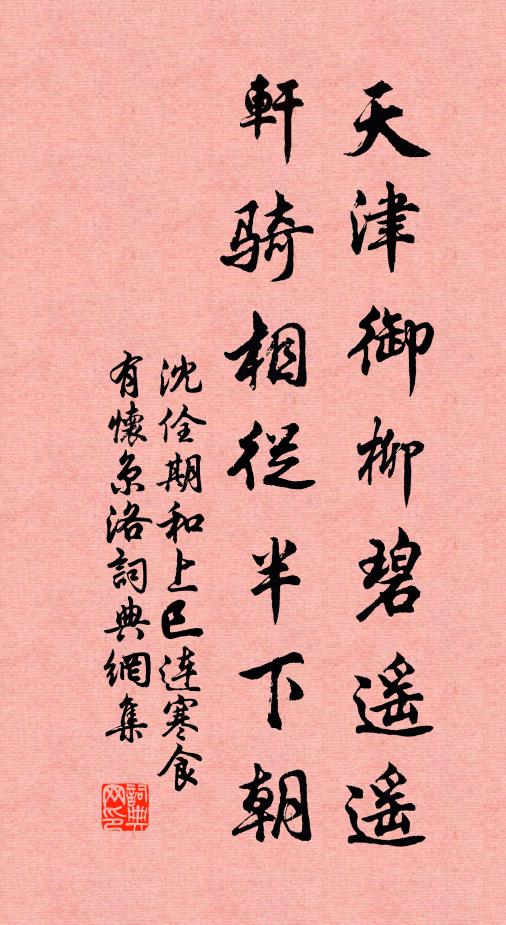 天津御柳碧遥遥
軒騎相從半下朝
沈佺期和上巳连寒食
有懷京洛詞典網集
詞典
网印